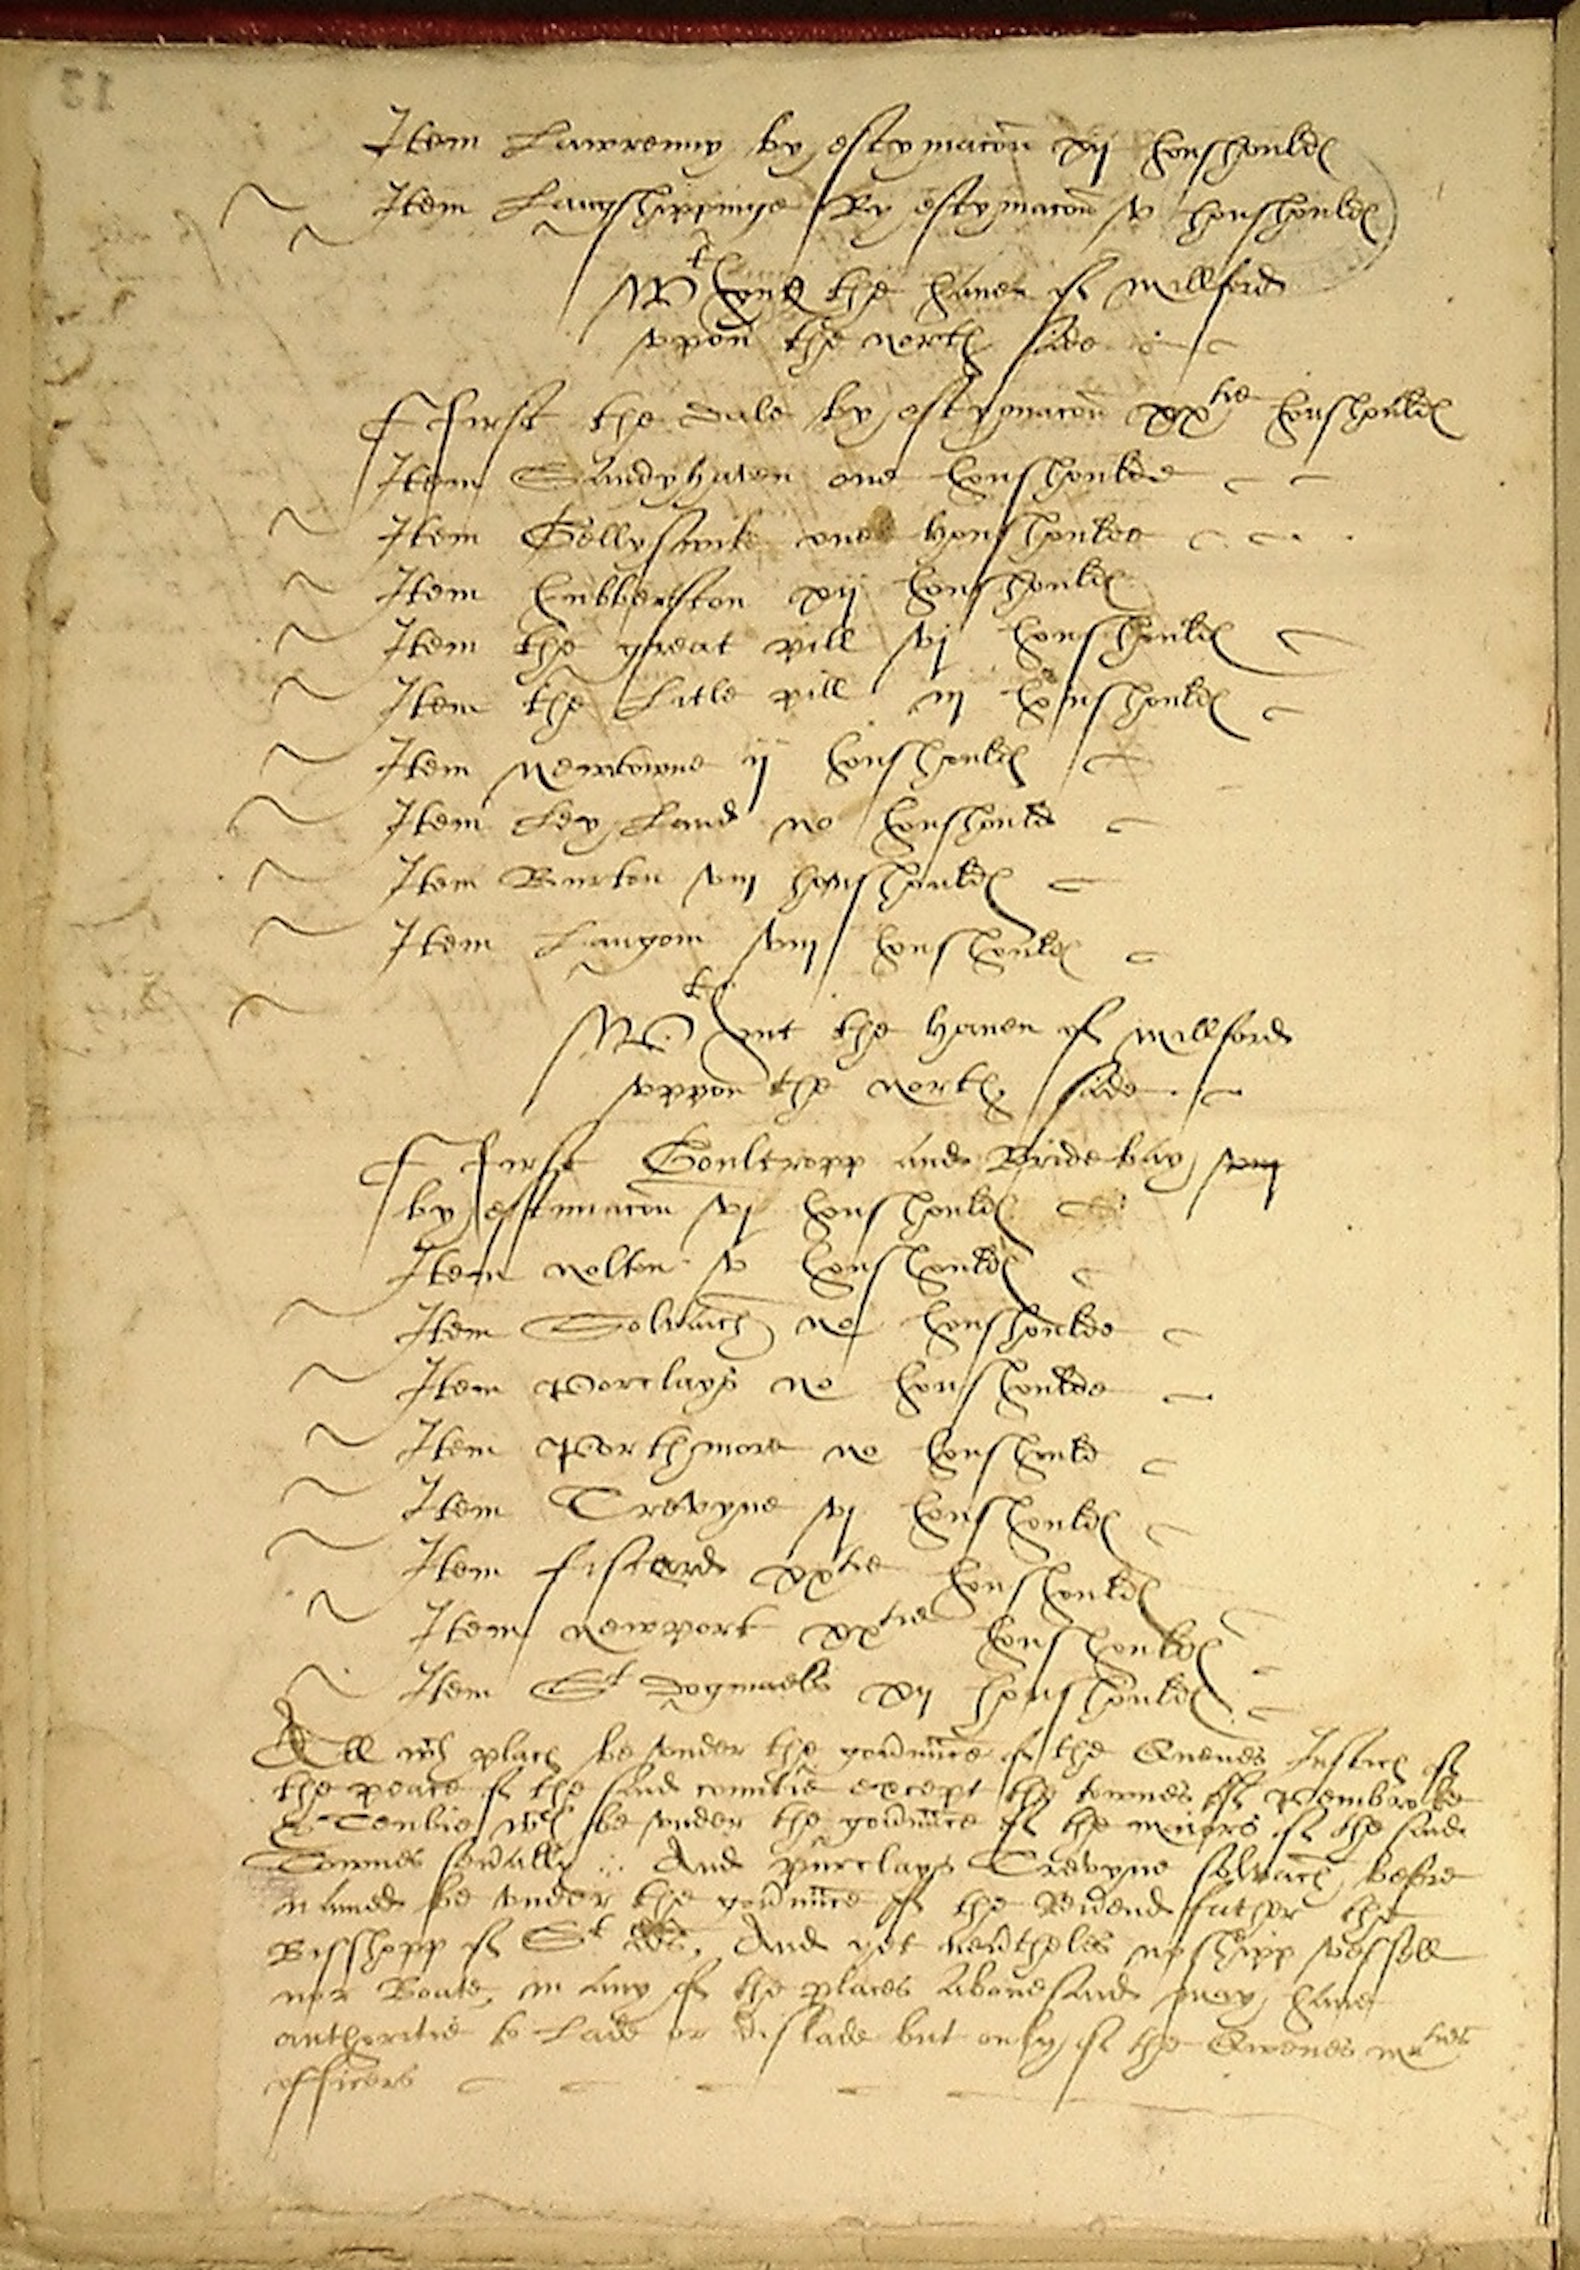 13
Item Lawrenny by estymacon xij houshould
Item Langshippinge By estymacon v houshould
Wth out the haven of Millford
vpon the north side
ffirst the Dale by estymacon xxtie houshould
Item Sandyhaven one houshoulde
Item Gellyswike one houshoulde
Item hubberston xij houshould
Item the great pill vj houshould
Item the Litle pill iij houshould
Item Newtowne ij houshould
Item Ley Land no houshould
Item Burton viij houshould
Item Langom viij houshould
Wth out the haven of Millford
vppon the north side
ffirst Goultropp and Bride bay viij
by estimacon vj houshould
Item Nolton v houshould
Item Solvach no houshoulde
Item Porclays no houshoulde
Item Porthmore no houshould
Item Trevyne vj houshould
Item fiscard xxtie houshould
Item Newport xxtie houshould
Item St Dogmaels xij houshould
All wch places be vnder the gounnce of the Quenes Justices of
the peace of the said countie except the townes of Pembroke
& Tenbie wch be vnder the gounnce of the maiors of the said
Townes seually And Purclays Trevyne Solvach before
named be vnder the gounnce of the Reuend father the
Bisshopp of St And yet neutheles no shipp vessell
nor Boate in any of the places abouesaid may haue
authoritie to Lade or dislade but only of the Quenes maties
officers